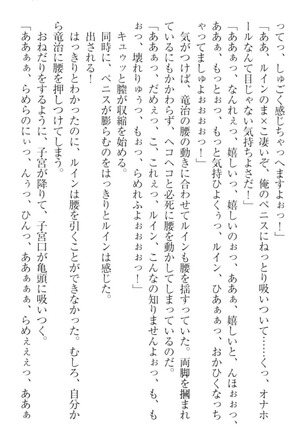 ってっ、しゅごく感じちゃっへますよぉっ！」
「ああ、ルインのま×こ凄いぞ、俺のペニスにねっとり吸いついて……くっ、オナホ
ールなんて目じゃない気持ちよさだ！」
「ああぁっ、なんれぇっ、嬉しいっ、嬉しいのぉっ、ああぁ、嬉しいと、んほぉぉっ、
あああぁっ、もっと、もっと気持ひよくぅっ、ルイン、ひあぁぁっ、おかひくなっち
ゃってましゅよぉぉぉぉっ！」
気がつけば、竜治の腰の動きに合わせてルインも腰を揺すっていた。両脚を摑まれ
ているにもかかわらず、ヘコヘコと必死に腰を動かしてしまっているのだ。
「ああぁっ、だめぇっ、こ、これぇっ、ルイン、こんなの知りませんよぉっ、も、も
ぉっ、壊れりゅうっ、もぉっ、らめれふよぉぉぉぉっ！」
キュウッと膣が収縮を始める。
同時に、ペニスが膨らむのをはっきりとルインは感じた。
出される！
はっきりとわかったのに、ルインは腰を引くことができなかった。むしろ、自分か
ら竜治に腰を押しつけてしまう。
おねだりをするように、子宮が降りて、子宮口が亀頭に吸いつく。
「ああぁぁ、らめらのにぃっ、んぅっ、ひんっ、ああぁぁぁっ、らめぇぇぇっ、ああぁ